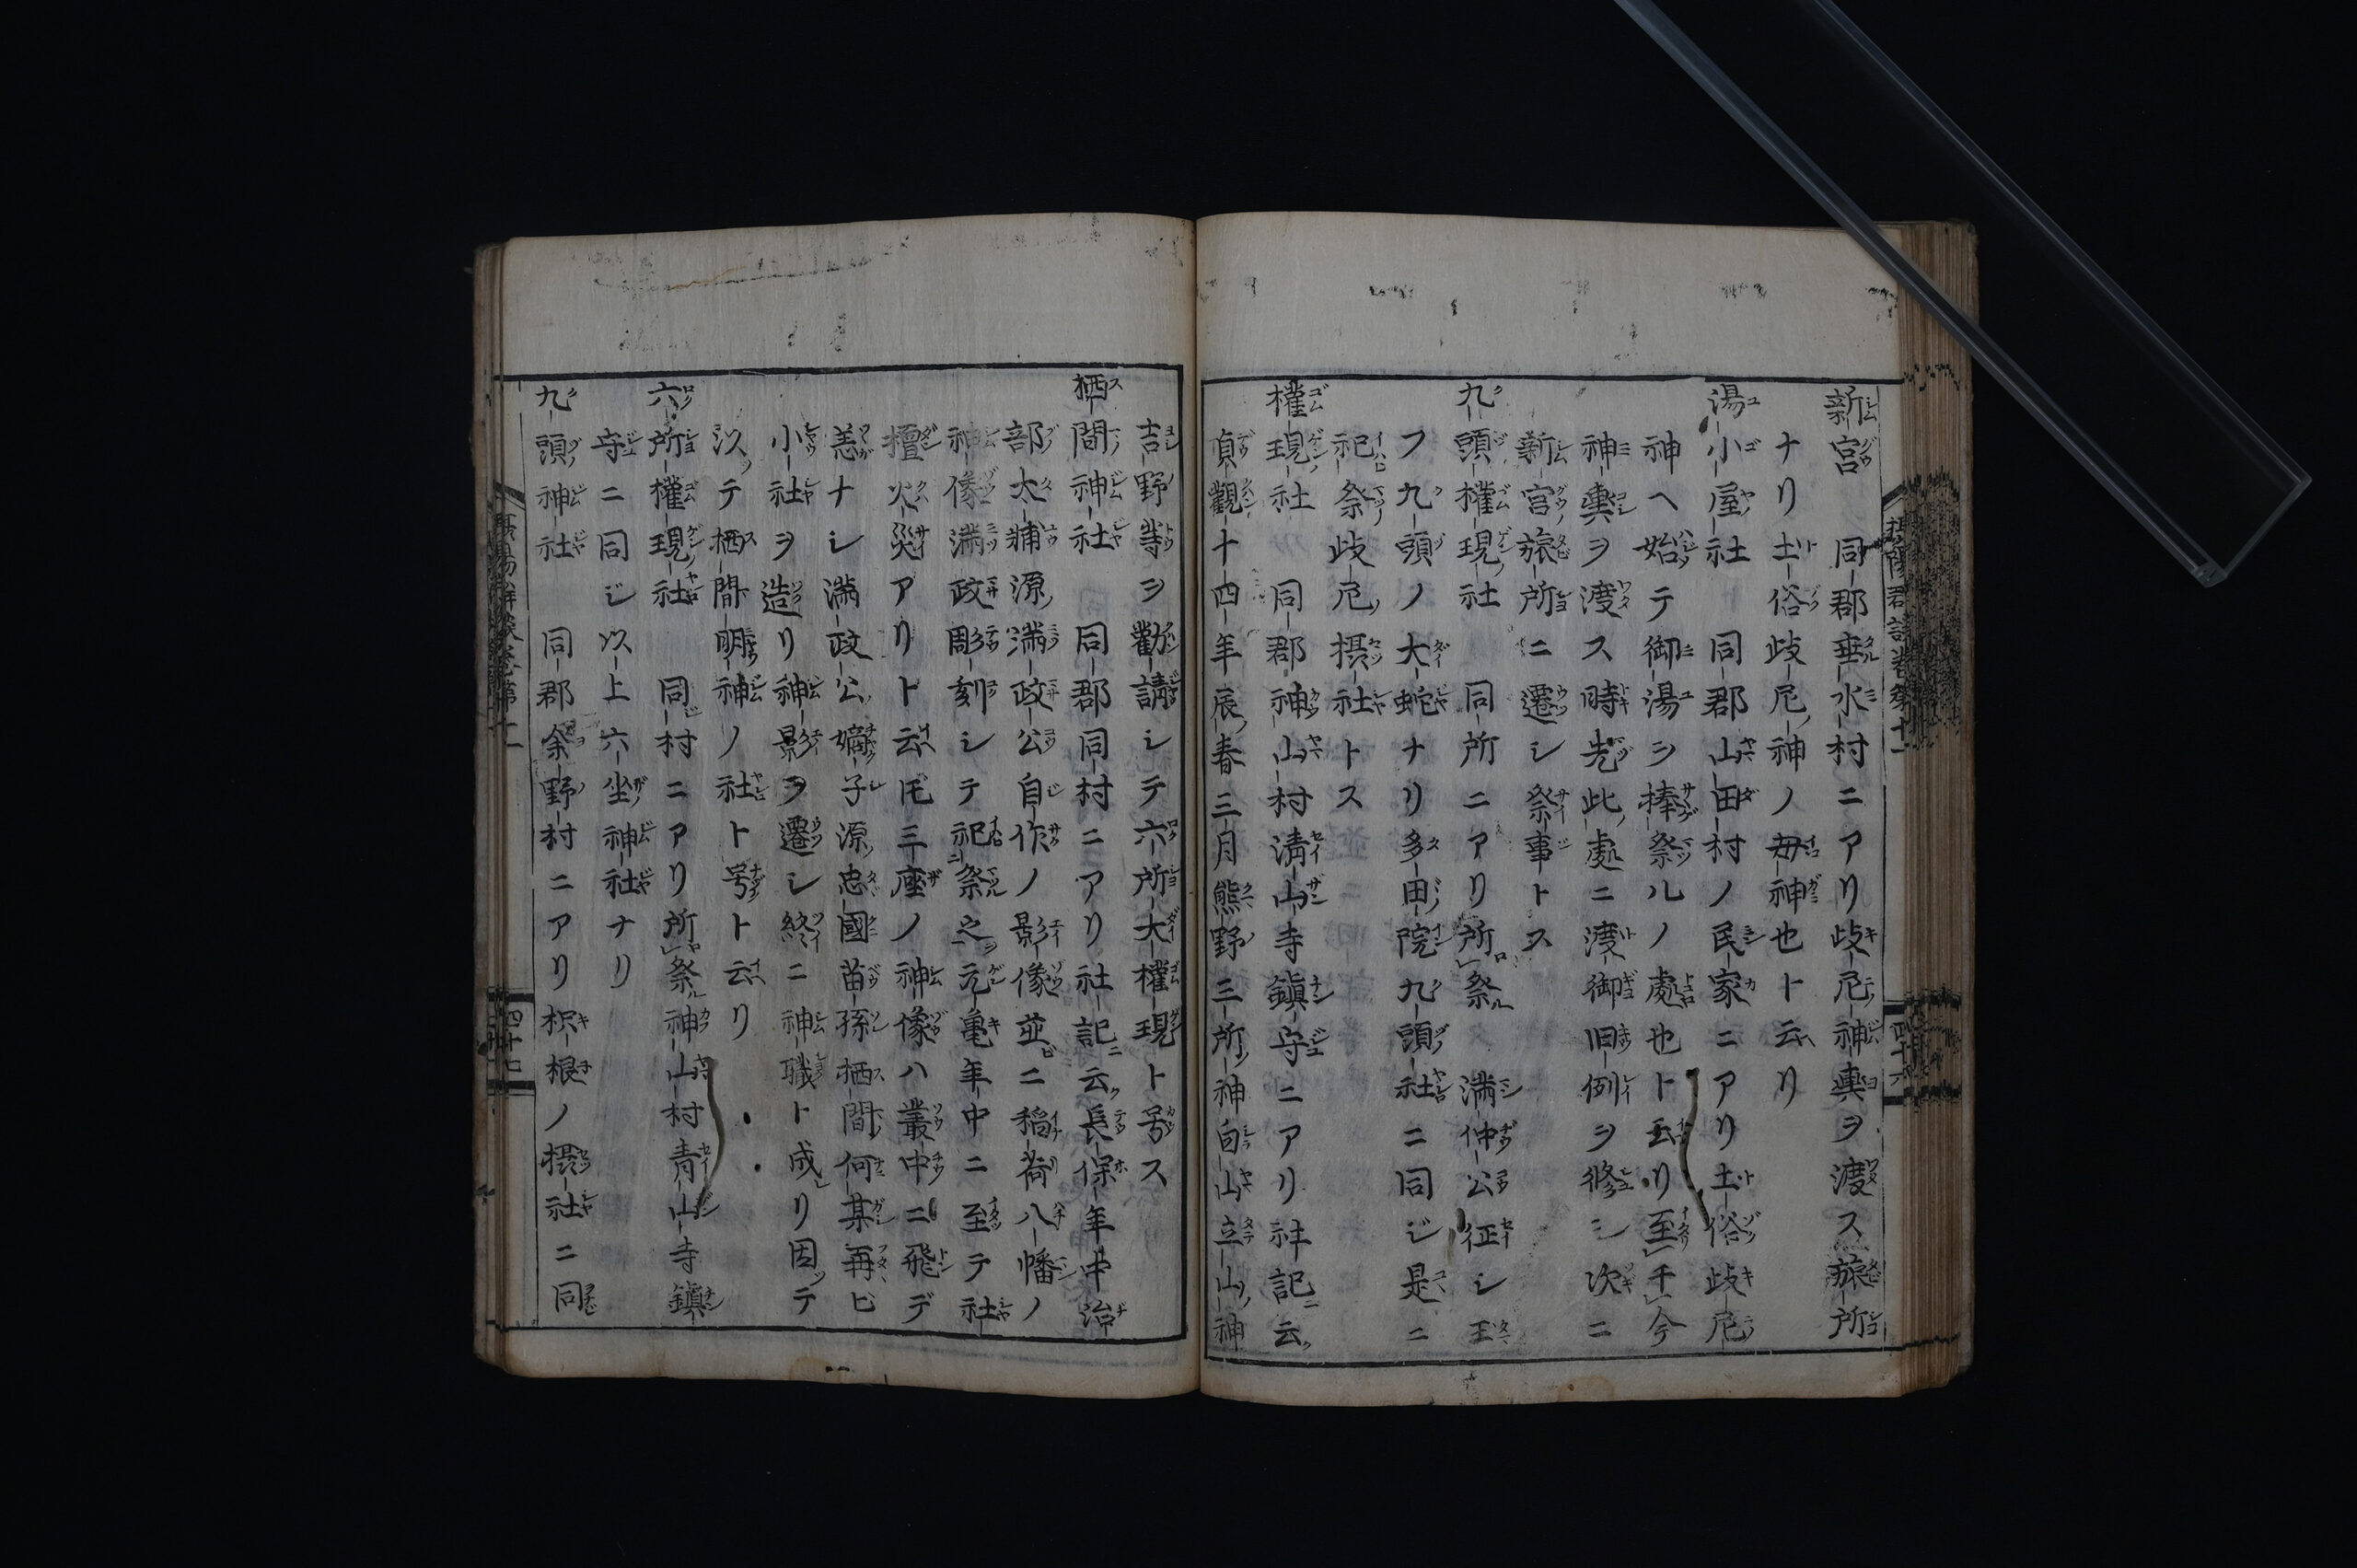 新宮 同郡垂水村ニアリ歧尼神輿ヲ渡ス旅所
ナリ土俗歧尼神ノ母神也ト云リ
湯小屋社 同郡山田村ノ民家ニアリ土俗歧尼
神ヘ始テ御湯ヲ捧祭ルノ處也ト云リ至于今
神輿ヲ渡ス時先此處ニ渡御旧例ヲ修シ次ニ
新宮旅所ニ遷シ祭事トス
九頭權現社 同所ニアリ所祭 満仲公征シ玉
フ九頭ノ大蛇ナリ多田院九頭社ニ同ジ是ニ
祀祭歧尼摂社トス
權現社 同郡神山村淸山寺鎮守ニアリ社記云
貞觀十四年辰春三月熊野三所神白山立山神
吉野等ヲ勸請シテ六所大權現ト号ス
栖間神社 同郡同村ニアリ社記云長保年中治
部太輔源満政公自作ノ影像並ニ稲荷八幡ノ
神像満政彫刻シテ祀祭之元亀年中ニ至テ社
檀火災アリト云ヒ三座ノ神像ハ叢中ニ飛デ
恙ナシ満政公嫡子源忠國苗孫栖間何某再ビ
小社ヲ造リ神影ヲ遷シ終ニ神職ト成リ因テ
以テ栖間明神ノ社ト号ト云リ
六所權現社 同村ニアリ所祭神山村青山寺鎮
守ニ同ジ以上六坐神社ナリ
九頭神社 同郡余野村ニアリ枳根ノ摂社ニ同
摂陽群談巻第十一
四十六
四十七